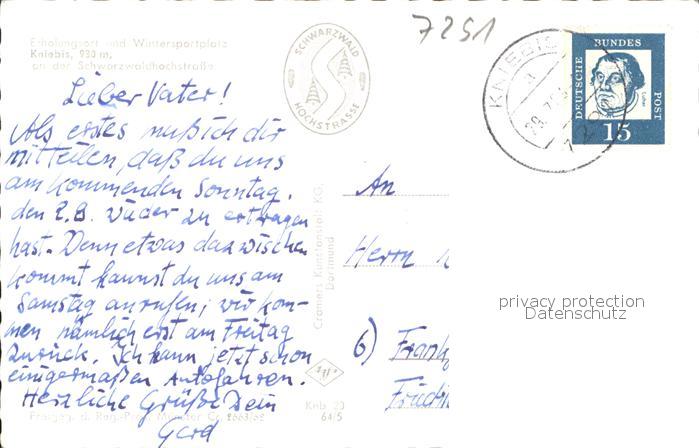 7251
Erholungsort und Wintersportplatz
Kniebis, 930 m,
an der Schwarzwaldhochstraße
SCHWARZWALD
HOCHSTRASSE
KNIEBIS
DEUTSCHE
BUNDES
POST
Luther
15
Lieber Vater!
Als erstes muß ich dir
mitteilen, daß du uns
am kommenden Sonntag,
den 2.8. wieder zu ertragen
hast. Wenn etwas dazwischen
kommt kannst du uns am
Samstag anrufen; wir kom-
men nämlich erst am Freitag
zurück. Ich kann jetzt schon
einigermaßen Autofahren.
Herzliche Grüße Dein
Gerd
Freigeg. d. Reg.-Präs. Münster
Cramers Kunstanstalt KG.
Dortmund
Knb 23
64/5
An
Herrn
6) Frank
Friedri
privacy protection
Datenschutz